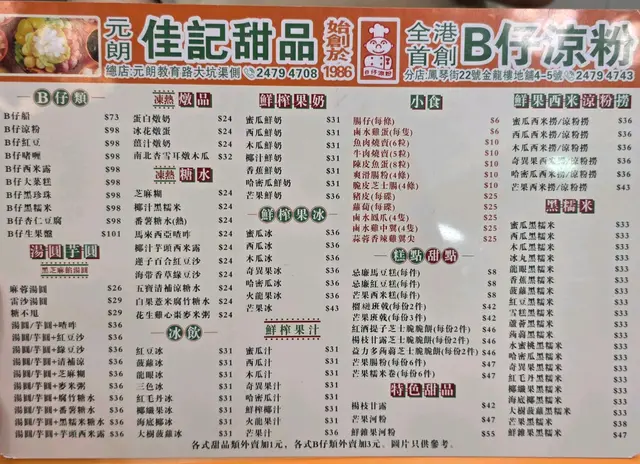 元朗
佳記甜品
始創於
1986
B仔涼粉
全港
首創
B仔涼粉
總店:元朗教育路大坑渠側 2479 4708
分店:鳳琴街22號金龍樓地舖4-5號 2479 4743
B仔類
B仔船 $73
B仔涼粉 $98
B仔紅豆 $98
B仔啫喱 $98
B仔西米露 $98
B仔大菜糕 $98
B仔黑珍珠 $98
B仔黑糯米 $98
B仔杏仁豆腐 $98
B仔生果盤 $101
湯圓芋圓
黑芝麻餡湯圓
麻蓉湯圓 $26
雷沙湯圓 $29
糖不甩 $29
湯圓/芋圓+喳咋 $36
湯圓/芋圓+紅豆沙 $36
湯圓/芋圓+綠豆沙 $36
湯圓/芋圓+清補涼 $36
湯圓/芋圓+芝麻糊 $36
湯圓/芋圓+麥米粥 $36
湯圓/芋圓+腐竹糖水 $36
湯圓/芋圓+番薯糖水 $36
湯圓/芋圓+黑糯米糖水 $36
湯圓/芋圓+芋頭西米露 $36
凍熱 燉品
蛋白燉奶 $24
冰花燉蛋 $24
薑汁燉奶 $24
南北杏雪耳燉木瓜 $32
凍熱 糖水
芝麻糊 $24
椰汁黑糯米 $24
番薯糖水(熱) $24
馬來西亞喳咋 $24
椰汁芋頭西米露 $24
蓮子百合紅豆沙 $24
海帶香草綠豆沙 $24
五寶清補涼糖水 $24
白果薏米腐竹糖水 $24
花生雞心棗麥米粥 $24
冰飲
紅豆冰 $31
菠蘿冰 $31
龍眼冰 $31
三色冰 $31
紅毛丹冰 $31
椰纖果冰 $31
海底椰冰 $31
大樹菠蘿冰 $31
鮮榨果奶
蜜瓜鮮奶 $31
西瓜鮮奶 $31
木瓜鮮奶 $31
椰汁鮮奶 $31
香蕉鮮奶 $31
哈密瓜鮮奶 $31
芒果鮮奶 $36
鮮榨果冰
蜜瓜冰 $36
西瓜冰 $36
木瓜冰 $36
奇異果冰 $36
哈密瓜冰 $36
火龍果冰 $36
芒果冰 $43
鮮榨果汁
蜜瓜汁 $31
西瓜汁 $31
木瓜汁 $31
奇異果汁 $31
哈密瓜汁 $31
鮮榨椰汁 $31
火龍果汁 $31
芒果汁 $36
小食
腸仔(每條) $6
鹵水雞蛋(每隻) $6
魚肉燒賣(6粒) $10
牛肉燒賣(5粒) $10
陳皮魚蛋(8粒) $10
爽滑腸粉(4條) $10
脆皮芝士腸(4條) $10
豬皮(每碟) $23
蘿蔔(每碟) $23
鹵水鳳爪(4隻) $23
鹵水雞中翼(4隻) $23
蒜蓉香辣雞翼尖 $23
糕點甜點
忌廉馬豆糕(每件) $8
忌廉紅豆糕(每件) $8
芒果西米糕(每件) $8
榴槤班戟(每份2件) $42
芒果班戟(每份2件) $42
紅酒提子芝士脆脆餅(每份2件) $46
楊枝甘露芝士脆脆餅(每份2件) $46
益力多蒟蒻芝士脆脆餅(每份2件) $46
芒果腸粉(每份6件) $47
芒果糯米卷(每份6件) $47
特色甜品
楊枝甘露 $42
芒果河粉 $47
鮮雜果河粉 $55
鮮果西米涼粉撈
蜜瓜西米撈/涼粉撈 $36
西瓜西米撈/涼粉撈 $36
木瓜西米撈/涼粉撈 $36
奇異果西米撈/涼粉撈 $36
哈密瓜西米撈/涼粉撈 $36
芒果西米撈/涼粉撈 $43
黑糯米
蜜瓜黑糯米 $33
西瓜黑糯米 $33
木瓜黑糯米 $33
冰丸黑糯米 $33
龍眼黑糯米 $33
香蕉黑糯米 $33
菠蘿黑糯米 $33
紅豆黑糯米 $33
雪糕黑糯米 $33
蘆薈黑糯米 $33
蒟蒻黑糯米 $33
水蜜桃黑糯米 $33
哈密瓜黑糯米 $33
奇異果黑糯米 $33
紅毛丹黑糯米 $33
椰纖果黑糯米 $33
海底椰黑糯米 $33
大樹菠蘿黑糯米 $33
芒果黑糯米 $38
鮮雜果黑糯米 $47
各式甜品類外賣加1元,各式B仔類外賣加3元。圖片只供參考。